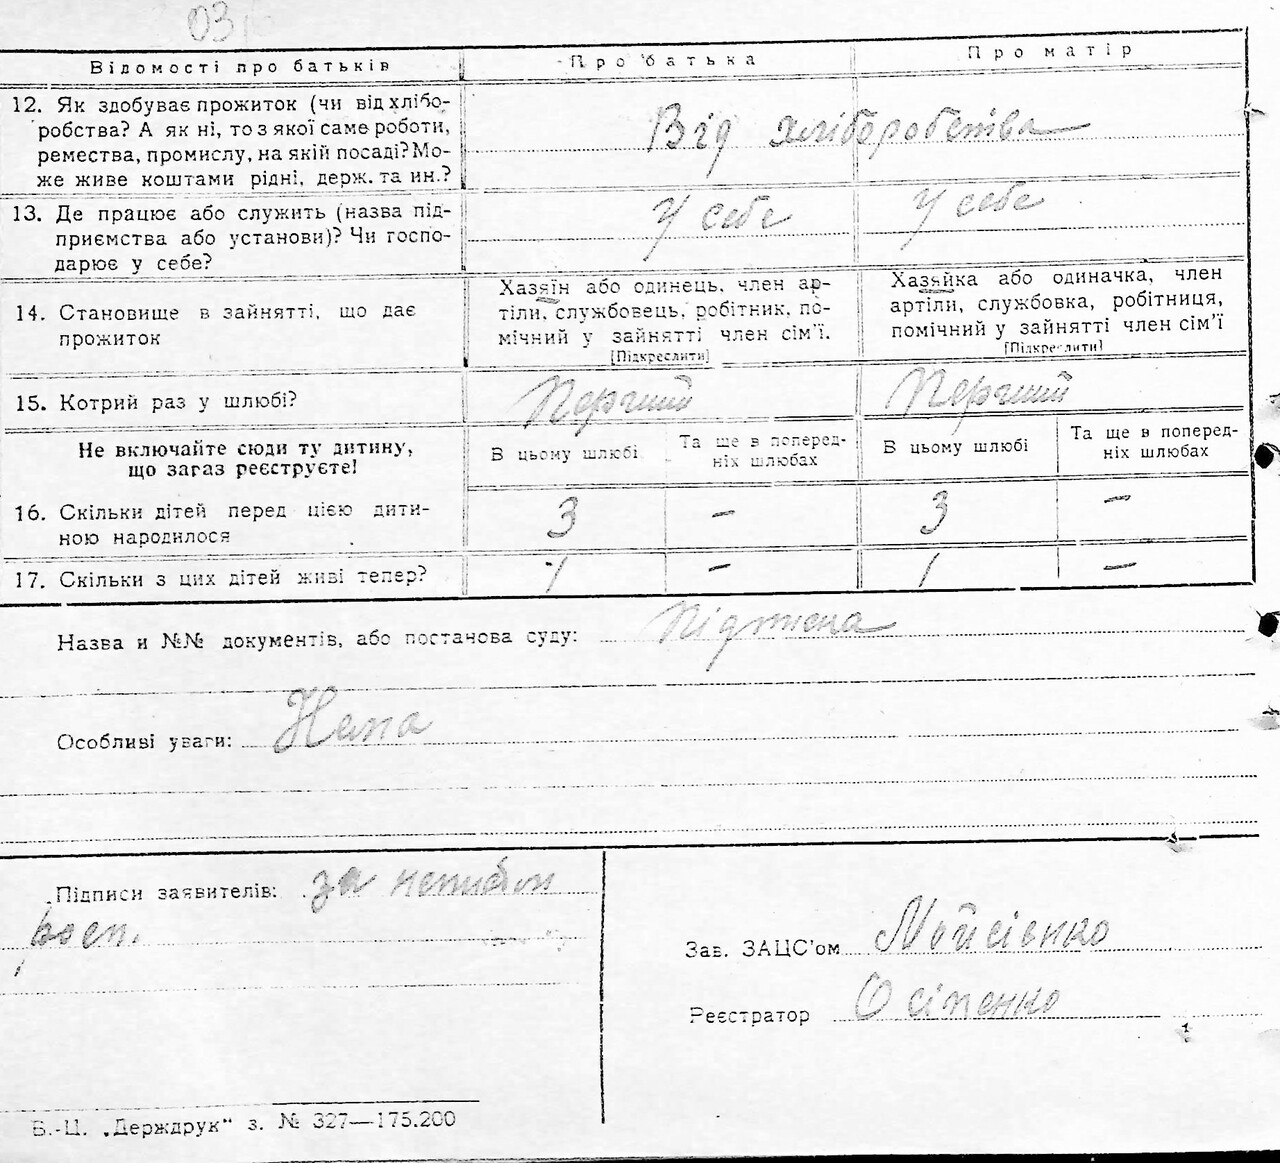 03
Відомості про батьків
Про батька
Про матір
12. Як здобуває прожиток (чи від хлібо-
робства? А як ні, то з якої саме роботи,
ремества, промислу, на якій посаді? Мо-
же живе коштами рідні, держ. та ин.?
Від хліборобства
13. Де працює або служить (назва під-
приємства або установи)? Чи госпо-
дарює у себе?
У себе
У себе
14. Становище в зайнятті, що дає
прожиток
Хазяїн або одинець, член ар-
тіли, службовець, робітник, по-
мічний у зайнятті член сім'ї.
[Підкреслити]
Хазяйка або одиначка, член
артіли, службовка, робітниця,
помічний у зайнятті член сім'ї
[Підкреслити]
15. Котрий раз у шлюбі?
Перший
Перший
Не включайте сюди ту дитину,
що загаз реєструєте!
В цьому шлюбі
Та ще в поперед-
ніх шлюбах
В цьому шлюбі
Та ще в поперед-
ніх шлюбах
16. Скільки дітей перед цією дити-
ною народилося
3
–
3
–
17. Скільки з цих дітей живі тепер?
1
–
1
–
Назва и №№ документів, або постанова суду: Підписка
Особливі уваги: Нема
Підписи заявителів: за
росп.
Зав. ЗАЦС'ом Мойсієнко
Реєстратор Осіпенко
Б.-Ц. „Держдрук" з. № 327—175.200